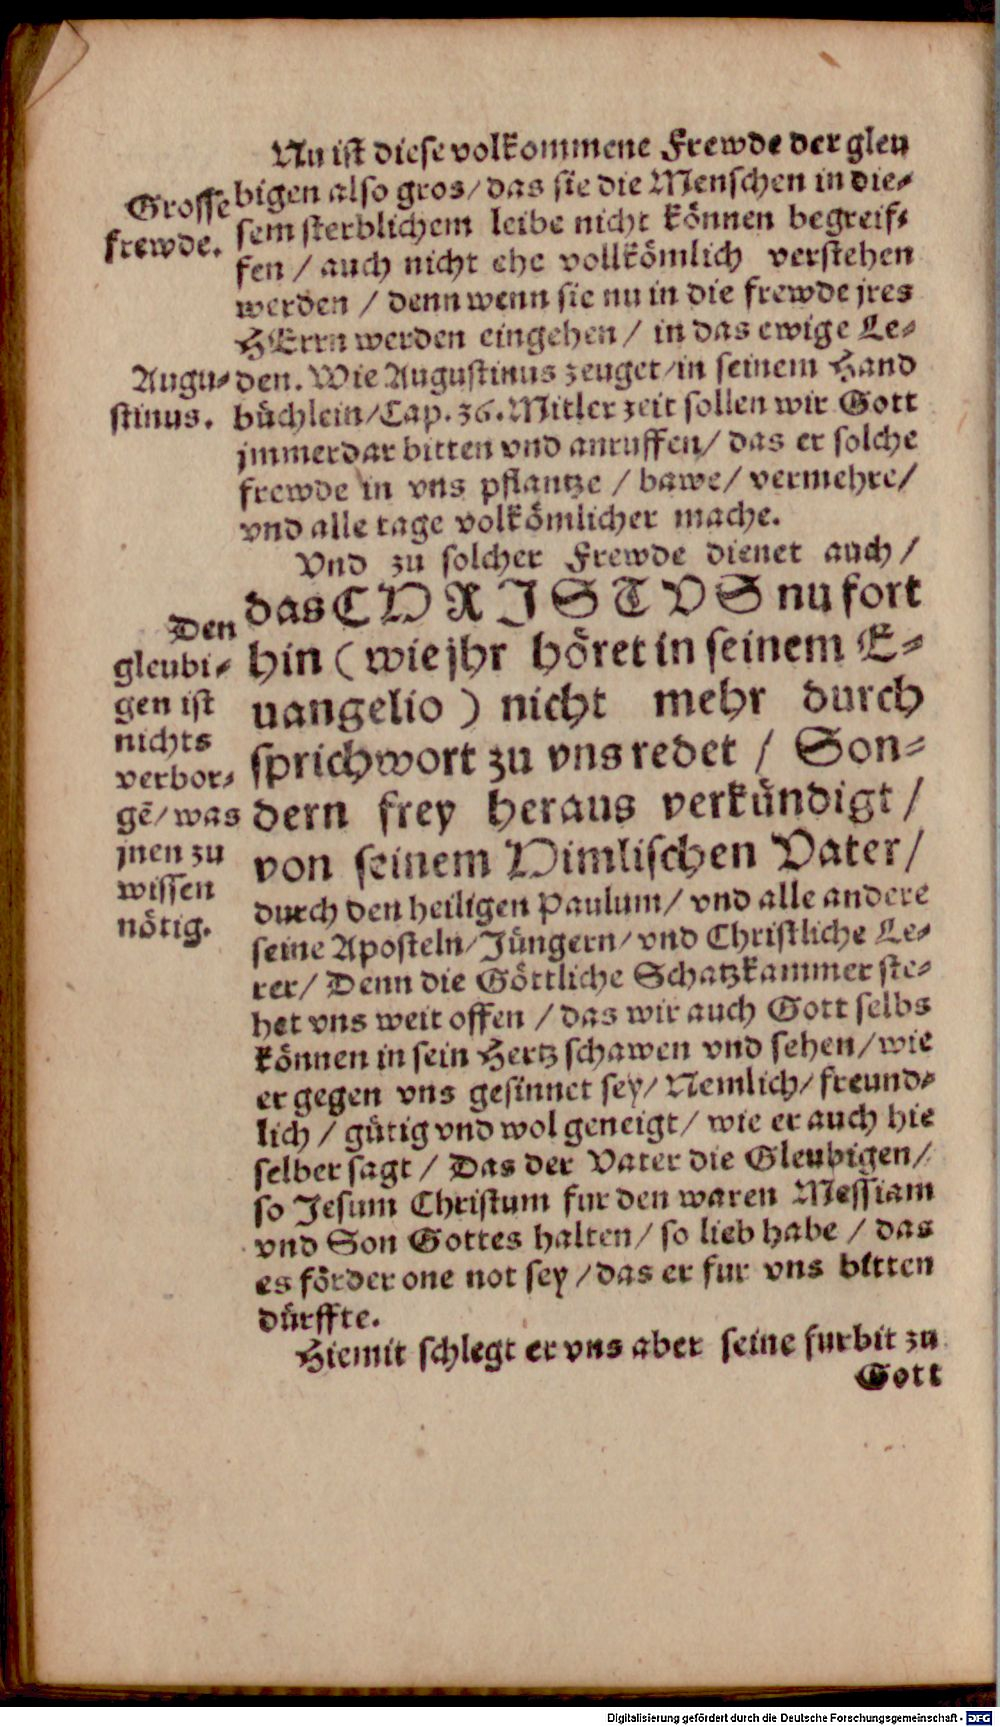 Nu ist diese volkommene Frewde der gleu
bigen also gros/ das sie die Menschen in die-
Grosse
frewde.
sem sterblichem leibe nicht können begreif-
fen / auch nicht ehe vollkömlich verstehen
werden / denn wenn sie nu in die frewde jres
HErrn werden eingehen / in das ewige Le-
Augu-
stinus.
den. Wie Augustinus zeuget/ in seinem Hand
büchlein/ Cap. 36. Mitler zeit sollen wir Gott
jmmerdar bitten vnd anruffen/ das er solche
frewde in vns pflantze / bawe/ vermehre/
vnd alle tage volkömlicher mache.
Vnd zu solcher Frewde dienet auch /
das CHRISTVS nu fort
Den
gleubi-
gen ist
nichts
verbor-
gē/ was
jnen zu
wissen
nötig.
hin ( wie jhr höret in seinem E-
uangelio ) nicht mehr durch
sprichwort zu vns redet / Son-
dern frey heraus verkündigt /
von seinem Himlischen Vater /
durch den heiligen Paulum/ vnd alle andere
seine Aposteln/ Jüngern/ vnd Christliche Le-
rer/ Denn die Göttliche Schatzkammer ste-
het vns weit offen / das wir auch Gott selbs
können in sein Hertz schawen vnd sehen/ wie
er gegen vns gesinnet sey/ Nemlich/ freund-
lich / gütig vnd wol geneigt/ wie er auch hie
selber sagt / Das der Vater die Gleubigen/
so Jesum Christum fur den waren Messiam
vnd Son Gottes halten/ so lieb habe / das
es förder one not sey / das er fur vns bitten
dürffte.
Hiemit schlegt er vns aber seine furbit zu
Gott
Digitalisierung gefördert durch die Deutsche Forschungsgemeinschaft - DFG